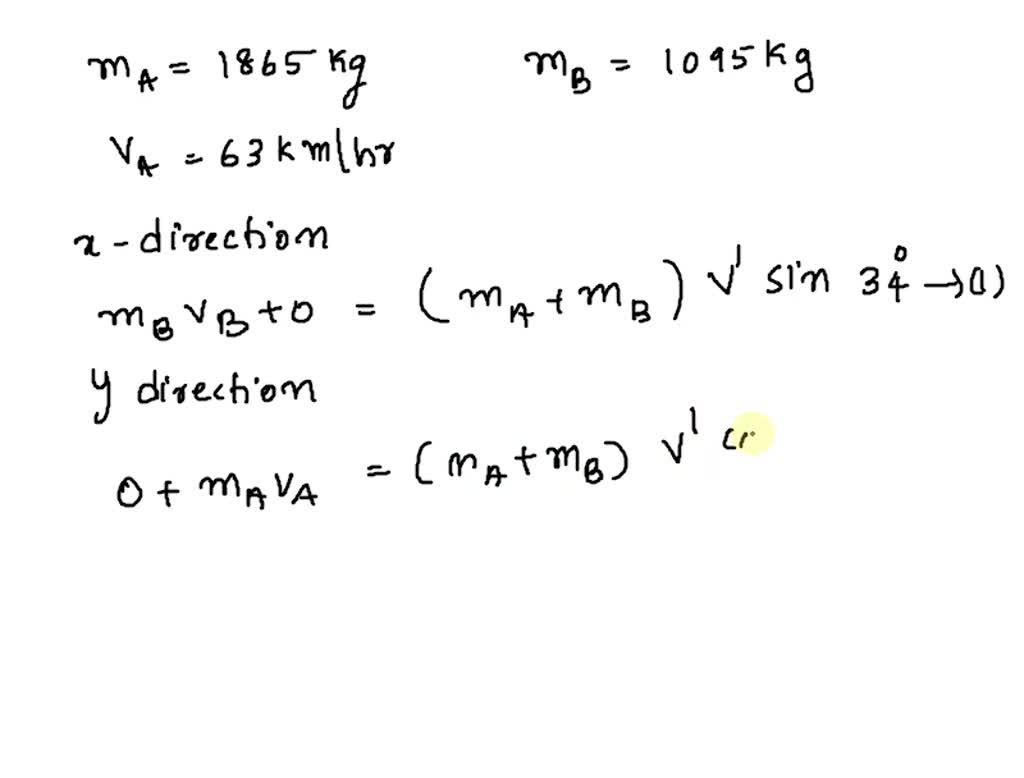 mA = 1865 kg mB = 1095 kg
vA = 63 km/hr
x - direction
mB vB + 0 = (mA + mB) v' sin 34° → (1)
y direction
0 + mA vA = (mA + mB) v'